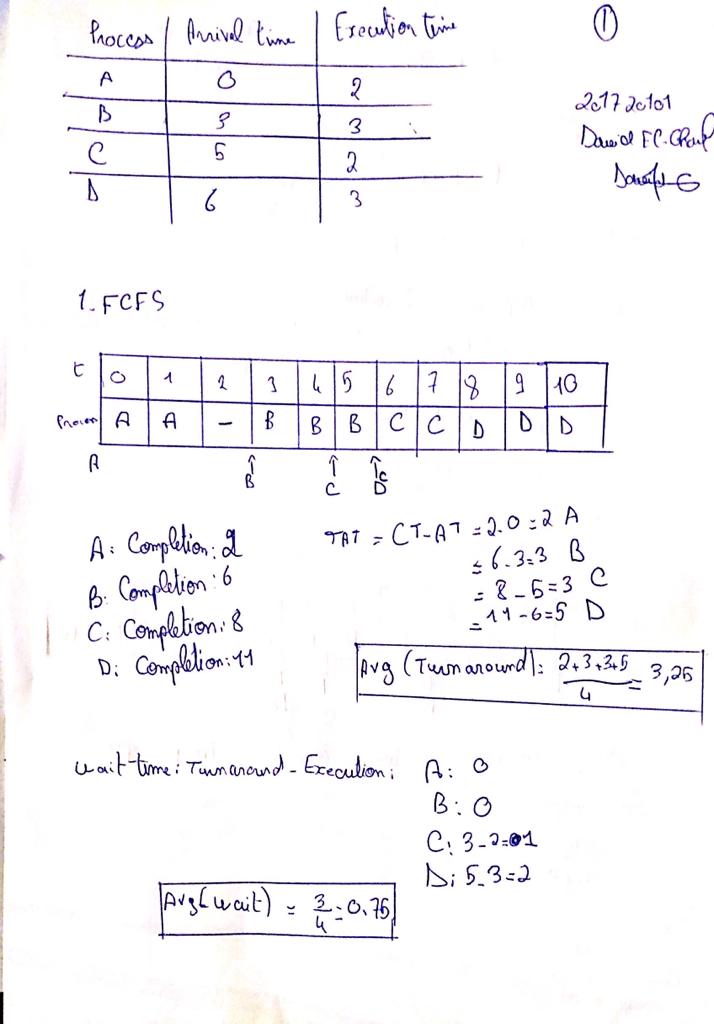 ①
Process | Arrival time | Execution time
A 0 2
B 3 3
C 5 2
D 6 3
20172001
1. FCFS
t 0 1 2 3 4 5 6 7 8 9 10
Process A A - B B B C C D D D
A ↑ B ↑ C ↑ D
A: Completion: 2
B: Completion: 6
C: Completion: 8
D: Completion: 11
TAT = CT-AT = 2-0=2 A
= 6-3=3 B
= 8-5=3 C
= 11-6=5 D
Avg (Turnaround): 2+3+3+5 / 4 = 3,25
wait-time: Turnaround - Execution: A: 0
B: 0
C: 3-2=1
D: 5-3=2
Avg(wait) = 3/4 = 0.75